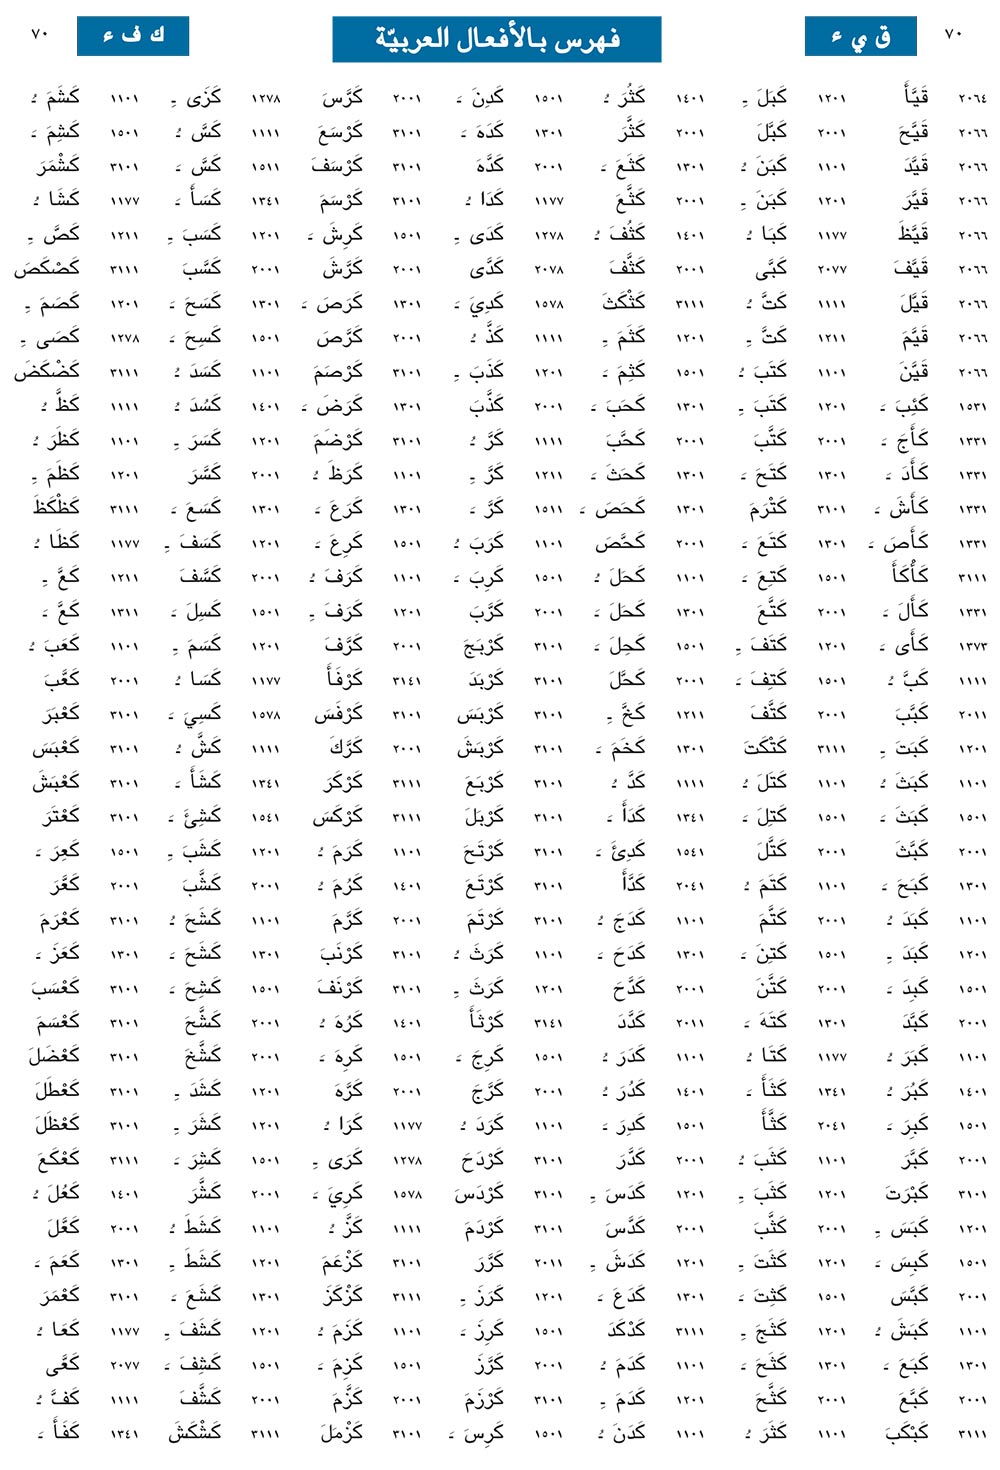 ٧٠ ق ي ء فهرس بالأفعال العربيّة ك ف ء ٧٠
٢٠٦٤ قَيَّأَ ١٢٠١ كَبَلَ ـِ ١٤٠١ كَثُرَ ـُ ١٥٠١ كَدِنَ ـَ ٢٠٠١ كَرَّسَ ١٢٧٨ كَزَى ـِ ١١٠١ كَشَمَ ـُ
٢٠٦٦ قَيَّحَ ٢٠٠١ كَبَّلَ ٢٠٠١ كَثَّرَ ١٣٠١ كَدَهَ ـَ ٣١٠١ كَرْسَعَ ١١١١ كَسَّ ـُ ١٥٠١ كَشِمَ ـَ
٢٠٦٦ قَيَّدَ ١١٠١ كَبَنَ ـُ ١٣٠١ كَثَعَ ـَ ٢٠٠١ كَدَّهَ ٣١٠١ كَرْسَفَ ١٥١١ كَسَّ ـَ ٣١٠١ كَشْمَرَ
٢٠٦٦ قَيَّرَ ١٢٠١ كَبَنَ ـِ ٢٠٠١ كَثَّعَ ١١٧٧ كَدَا ـُ ٣١٠١ كَرْسَمَ ١٣٤١ كَسَأَ ـَ ١١٧٧ كَشَا ـُ
٢٠٦٦ قَيَّظَ ١١٧٧ كَبَا ـُ ١٤٠١ كَثُفَ ـُ ١٢٧٨ كَدَى ـِ ١٥٠١ كَرِشَ ـَ ١٢٠١ كَسَبَ ـِ ١٢١١ كَصَّ ـِ
٢٠٦٦ قَيَّفَ ٢٠٧٧ كَبَّى ٢٠٠١ كَثَّفَ ٢٠٧٨ كَدَّى ٢٠٠١ كَرَّشَ ٢٠٠١ كَسَّبَ ٣١١١ كَصْكَصَ
٢٠٦٦ قَيَّلَ ١١١١ كَتَّ ـُ ٣١١١ كَثْكَثَ ١٥٧٨ كَدِيَ ـَ ١٣٠١ كَرَصَ ـَ ١٣٠١ كَسَحَ ـَ ١٢٠١ كَصَمَ ـِ
٢٠٦٦ قَيَّمَ ١٢١١ كَتَّ ـِ ١٢٠١ كَثَمَ ـِ ١١١١ كَذَّ ـُ ٢٠٠١ كَرَّصَ ١٥٠١ كَسِحَ ـَ ١٢٧٨ كَصَى ـِ
٢٠٦٦ قَيَّنَ ١١٠١ كَتَبَ ـُ ١٥٠١ كَثِمَ ـَ ١٢٠١ كَذَبَ ـِ ٣١٠١ كَرْصَمَ ١١٠١ كَسَدَ ـُ ٣١١١ كَضْكَضَ
١٥٣١ كَئِبَ ـَ ١٢٠١ كَتَبَ ـِ ١٣٠١ كَحَبَ ـَ ٢٠٠١ كَذَّبَ ١٣٠١ كَرَضَ ـَ ١٤٠١ كَسُدَ ـُ ١١١١ كَظَّ ـُ
١٣٣١ كَأَجَ ـَ ٢٠٠١ كَتَّبَ ٢٠٠١ كَحَّبَ ١١١١ كَرَّ ـُ ٣١٠١ كَرْضَمَ ١٢٠١ كَسَرَ ـِ ١١٠١ كَظَرَ ـُ
١٣٣١ كَأَدَ ـَ ١٣٠١ كَتَحَ ـَ ١٣٠١ كَحَثَ ـَ ١٢١١ كَرَّ ـِ ١١٠١ كَرَظَ ـُ ٢٠٠١ كَسَّرَ ١٢٠١ كَظَمَ ـِ
١٣٣١ كَأَشَ ـَ ٣١٠١ كَتْرَمَ ١٣٠١ كَحَصَ ـَ ١٥١١ كَرَّ ـَ ١٣٠١ كَرَعَ ـَ ١٣٠١ كَسَعَ ـَ ٣١١١ كَظْكَظَ
١٣٣١ كَأَصَ ـَ ١٣٠١ كَتَعَ ـَ ٢٠٠١ كَحَّصَ ١١٠١ كَرَبَ ـُ ١٥٠١ كَرِعَ ـَ ١٢٠١ كَسَفَ ـِ ١١٧٧ كَظَا ـُ
٣١١١ كَأْكَأَ ١٥٠١ كَتِعَ ـَ ١١٠١ كَحَلَ ـُ ١٥٠١ كَرِبَ ـَ ١١٠١ كَرَفَ ـُ ٢٠٠١ كَسَّفَ ١٢١١ كَعَّ ـِ
١٣٣١ كَأَلَ ـَ ٢٠٠١ كَتَّعَ ١٣٠١ كَحَلَ ـَ ٢٠٠١ كَرَّبَ ١٢٠١ كَرَفَ ـِ ١٥٠١ كَسِلَ ـَ ١٣١١ كَعَّ ـَ
١٣٧٣ كَأَى ـَ ١٢٠١ كَتَفَ ـِ ١٥٠١ كَحِلَ ـَ ٣١٠١ كَرْبَجَ ٢٠٠١ كَرَّفَ ١٢٠١ كَسَمَ ـِ ١١٠١ كَعَبَ ـُ
١١١١ كَبَّ ـُ ١٥٠١ كَتِفَ ـَ ٢٠٠١ كَحَّلَ ٣١٠١ كَرْبَدَ ٣١٤١ كَرْفَأَ ١١٧٧ كَسَا ـُ ٢٠٠١ كَعَّبَ
٢٠١١ كَبَّبَ ٢٠٠١ كَتَّفَ ١٢١١ كَخَّ ـِ ٣١٠١ كَرْبَسَ ٣١٠١ كَرْفَسَ ١٥٧٨ كَسِيَ ـَ ٣١٠١ كَعْبَرَ
١٢٠١ كَبَتَ ـِ ٣١١١ كَتْكَتَ ١٣٠١ كَخَمَ ـَ ٣١٠١ كَرْبَشَ ٢٠٠١ كَرَّكَ ١١١١ كَشَّ ـُ ٣١٠١ كَعْبَسَ
١١٠١ كَبَثَ ـُ ١١٠١ كَتَلَ ـُ ١١١١ كَدَّ ـُ ٣١٠١ كَرْبَعَ ٣١١١ كَرْكَرَ ١٣٤١ كَشَأَ ـَ ٣١٠١ كَعْبَشَ
١٥٠١ كَبِثَ ـَ ١٥٠١ كَتِلَ ـَ ١٣٤١ كَدَأَ ـَ ٣١٠١ كَرْبَلَ ٣١١١ كَرْكَسَ ١٥٤١ كَشِئَ ـَ ٣١٠١ كَعْتَرَ
٢٠٠١ كَبَّثَ ٢٠٠١ كَتَّلَ ١٥٤١ كَدِئَ ـَ ٣١٠١ كَرْتَحَ ١١٠١ كَرَمَ ـُ ١٢٠١ كَشَبَ ـِ ١٥٠١ كَعِرَ ـَ
١٣٠١ كَبَحَ ـَ ١١٠١ كَتَمَ ـُ ٢٠٤١ كَدَّأَ ٣١٠١ كَرْتَعَ ١٤٠١ كَرُمَ ـُ ٢٠٠١ كَشَّبَ ٢٠٠١ كَعَّرَ
١١٠١ كَبَدَ ـُ ٢٠٠١ كَتَّمَ ١١٠١ كَدَجَ ـُ ٣١٠١ كَرْتَمَ ٢٠٠١ كَرَّمَ ١١٠١ كَشَحَ ـُ ٣١٠١ كَعْرَمَ
١٢٠١ كَبَدَ ـِ ١٥٠١ كَتِنَ ـَ ١٣٠١ كَدَحَ ـَ ١١٠١ كَرَثَ ـُ ٣١٠١ كَرْنَبَ ١٣٠١ كَشَحَ ـَ ١٣٠١ كَعَزَ ـَ
١٥٠١ كَبِدَ ـَ ٢٠٠١ كَتَّنَ ٢٠٠١ كَدَّحَ ١٢٠١ كَرَثَ ـِ ٣١٠١ كَرْنَفَ ١٥٠١ كَشِحَ ـَ ٣١٠١ كَعْسَبَ
٢٠٠١ كَبَّدَ ١٣٠١ كَتَهَ ـَ ٢٠١١ كَدَّدَ ٣١٤١ كَرْثَأَ ١٤٠١ كَرُهَ ـُ ٢٠٠١ كَشَّحَ ٣١٠١ كَعْسَمَ
١١٠١ كَبَرَ ـُ ١١٧٧ كَتَا ـُ ١١٠١ كَدَرَ ـُ ١٥٠١ كَرِجَ ـَ ١٥٠١ كَرِهَ ـَ ٢٠٠١ كَشَّخَ ٣١٠١ كَعْضَلَ
١٤٠١ كَبُرَ ـُ ١٣٤١ كَثَأَ ـَ ١٤٠١ كَدُرَ ـُ ٢٠٠١ كَرَّجَ ٢٠٠١ كَرَّهَ ١٢٠١ كَشَدَ ـِ ٣١٠١ كَعْطَلَ
١٥٠١ كَبِرَ ـَ ٢٠٤١ كَثَّأَ ١٥٠١ كَدِرَ ـَ ١١٠١ كَرَدَ ـُ ١١٧٧ كَرَا ـُ ١٢٠١ كَشَرَ ـِ ٣١٠١ كَعْظَلَ
٢٠٠١ كَبَّرَ ١١٠١ كَثَبَ ـُ ٢٠٠١ كَدَّرَ ٣١٠١ كَرْدَحَ ١٢٧٨ كَرَى ـِ ١٥٠١ كَشِرَ ـَ ٣١١١ كَعْكَعَ
٣١٠١ كَبْرَتَ ١٢٠١ كَثَبَ ـِ ١٢٠١ كَدَسَ ـِ ٣١٠١ كَرْدَسَ ١٥٧٨ كَرِيَ ـَ ٢٠٠١ كَشَّرَ ١٤٠١ كَعُلَ ـُ
١٢٠١ كَبَسَ ـِ ٢٠٠١ كَثَّبَ ٢٠٠١ كَدَّسَ ٣١٠١ كَرْدَمَ ١١١١ كَزَّ ـُ ١١٠١ كَشَطَ ـُ ٢٠٠١ كَعَّلَ
١٥٠١ كَبِسَ ـَ ١٢٠١ كَثَتَ ـِ ١٢٠١ كَدَشَ ـِ ٢٠١١ كَرَّرَ ٣١٠١ كَزْعَمَ ١٢٠١ كَشَطَ ـِ ١٣٠١ كَعَمَ ـَ
٢٠٠١ كَبَّسَ ١٥٠١ كَثِتَ ـَ ١٣٠١ كَدَعَ ـَ ١٢٠١ كَرَزَ ـِ ٣١١١ كَزْكَزَ ١٣٠١ كَشَعَ ـَ ٣١٠١ كَعْمَرَ
١١٠١ كَبَشَ ـُ ١٢٠١ كَثَجَ ـِ ٣١١١ كَدْكَدَ ١٥٠١ كَرِزَ ـَ ١١٠١ كَزَمَ ـُ ١٢٠١ كَشَفَ ـِ ١١٧٧ كَعَا ـُ
١٣٠١ كَبَعَ ـَ ١٣٠١ كَثَحَ ـَ ١١٠١ كَدَمَ ـُ ٢٠٠١ كَرَّزَ ١٥٠١ كَزِمَ ـَ ١٥٠١ كَشِفَ ـَ ٢٠٧٧ كَعَّى
٢٠٠١ كَبَّعَ ٢٠٠١ كَثَّحَ ١٢٠١ كَدَمَ ـِ ٣١٠١ كَرْزَمَ ٢٠٠١ كَزَّمَ ٢٠٠١ كَشَّفَ ١١١١ كَفَّ ـُ
٣١١١ كَبْكَبَ ١١٠١ كَثَرَ ـُ ١١٠١ كَدَنَ ـُ ١٥٠١ كَرِسَ ـَ ٣١٠١ كَزْمَلَ ٣١١١ كَشْكَشَ ١٣٤١ كَفَأَ ـَ